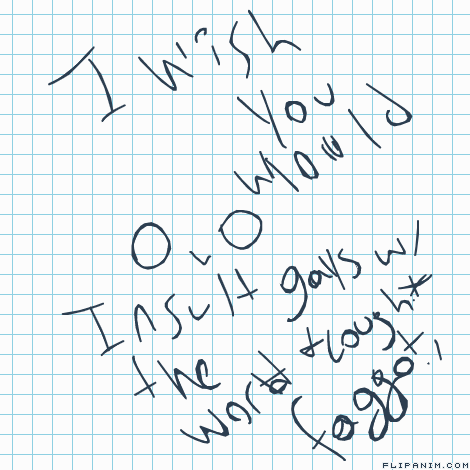 I wish
you
would
O,O
Insult gays w/
the
word
faggot.!
FLIPANIM.COM